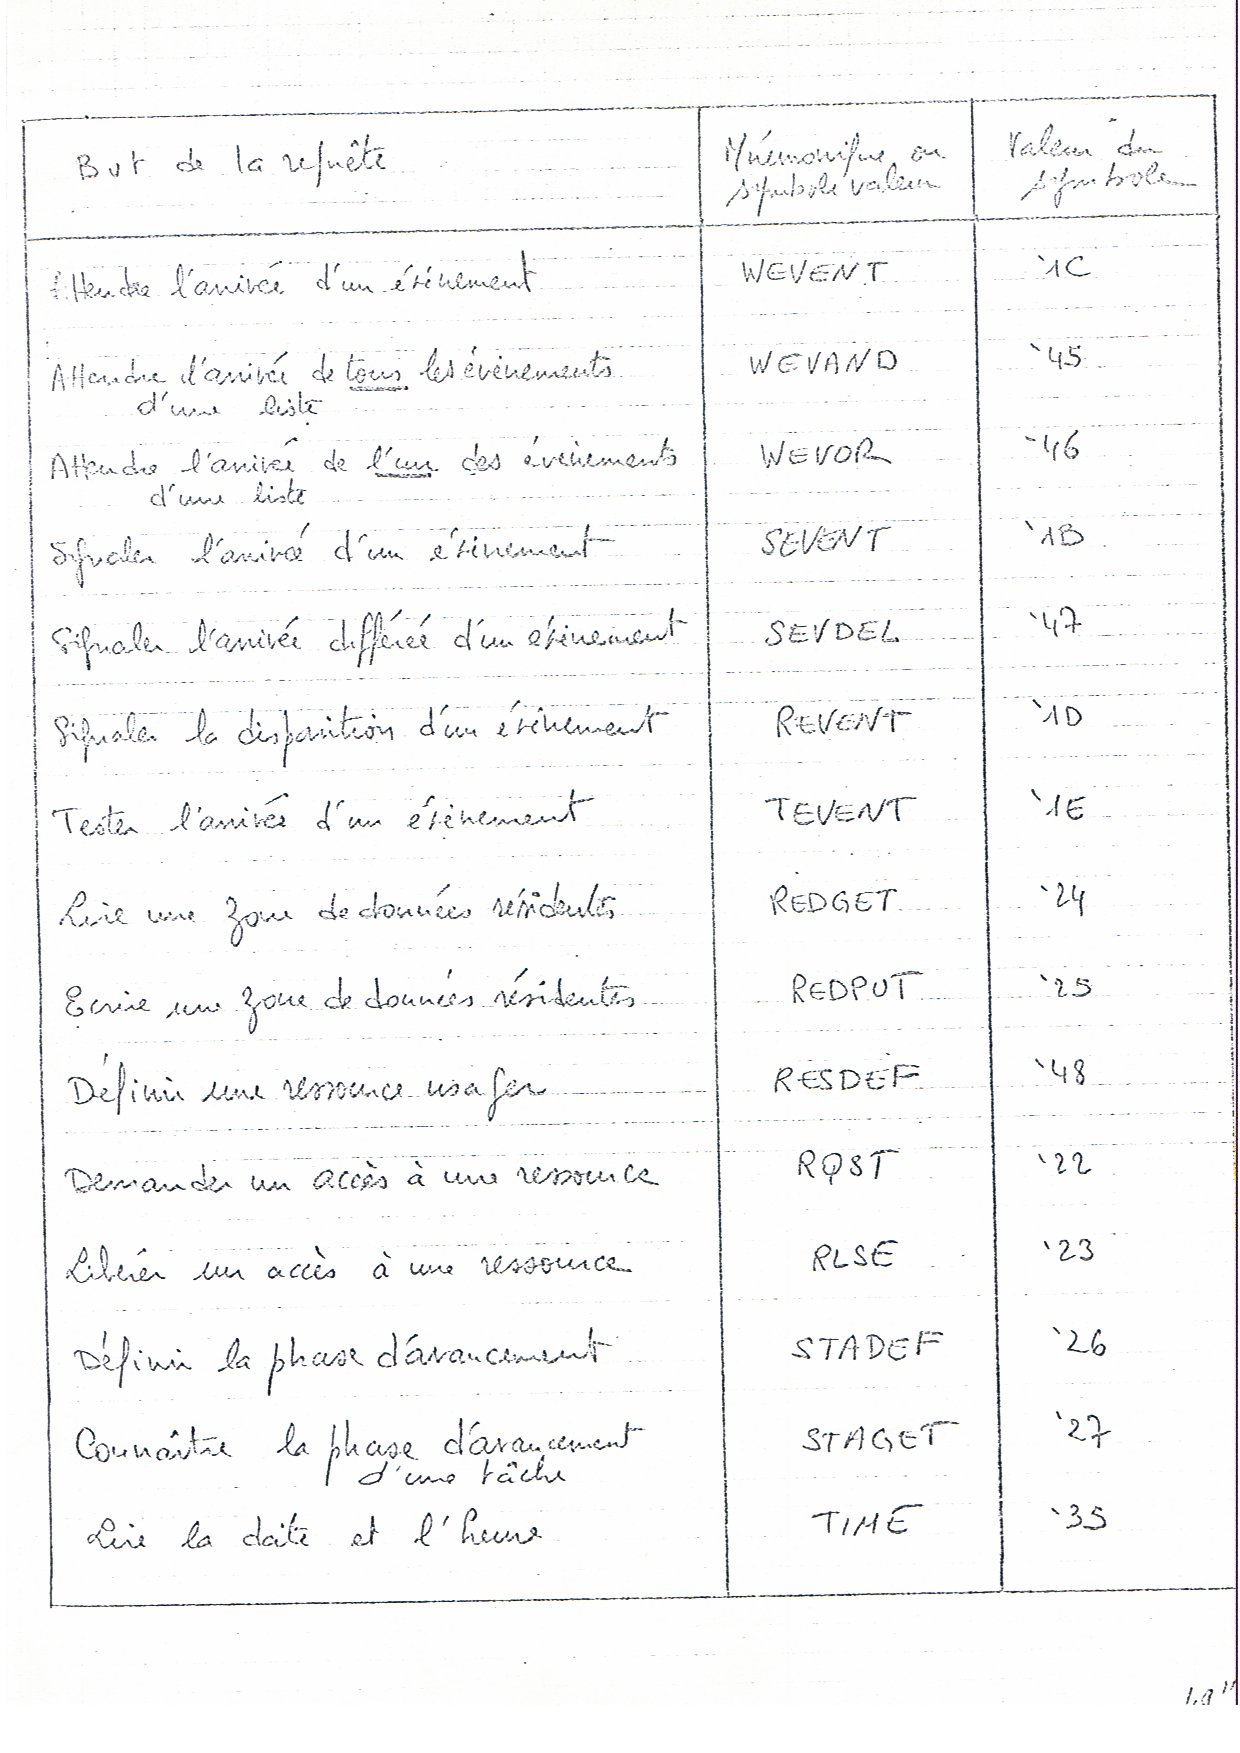 But de la requête
Mnémonique ou
symbole valeur
Valeur du
symbole
Attendre l'arrivée d'un événement WEVENT '1C
Attendre l'arrivée de tous les événements WEVAND '45
d'une liste
Attendre l'arrivée de l'un des événements WEVOR '46
d'une liste
Signaler l'arrivée d'un événement SEVENT '1B
Signaler l'arrivée différée d'un événement SEVDEL '47
Signaler la disparition d'un événement REVENT '1D
Tester l'arrivée d'un événement TEVENT '1E
Lire une zone de données résidentes REDGET '24
Ecrire une zone de données résidentes REDPUT '25
Définir une ressource usager RESDEF '48
Demander un accès à une ressource RQST '22
Libérer un accès à une ressource RLSE '23
Définir la phase d'avancement STADEF '26
Connaître la phase d'avancement STAGET '27
d'une tâche
Lire la date et l'heure TIME '35